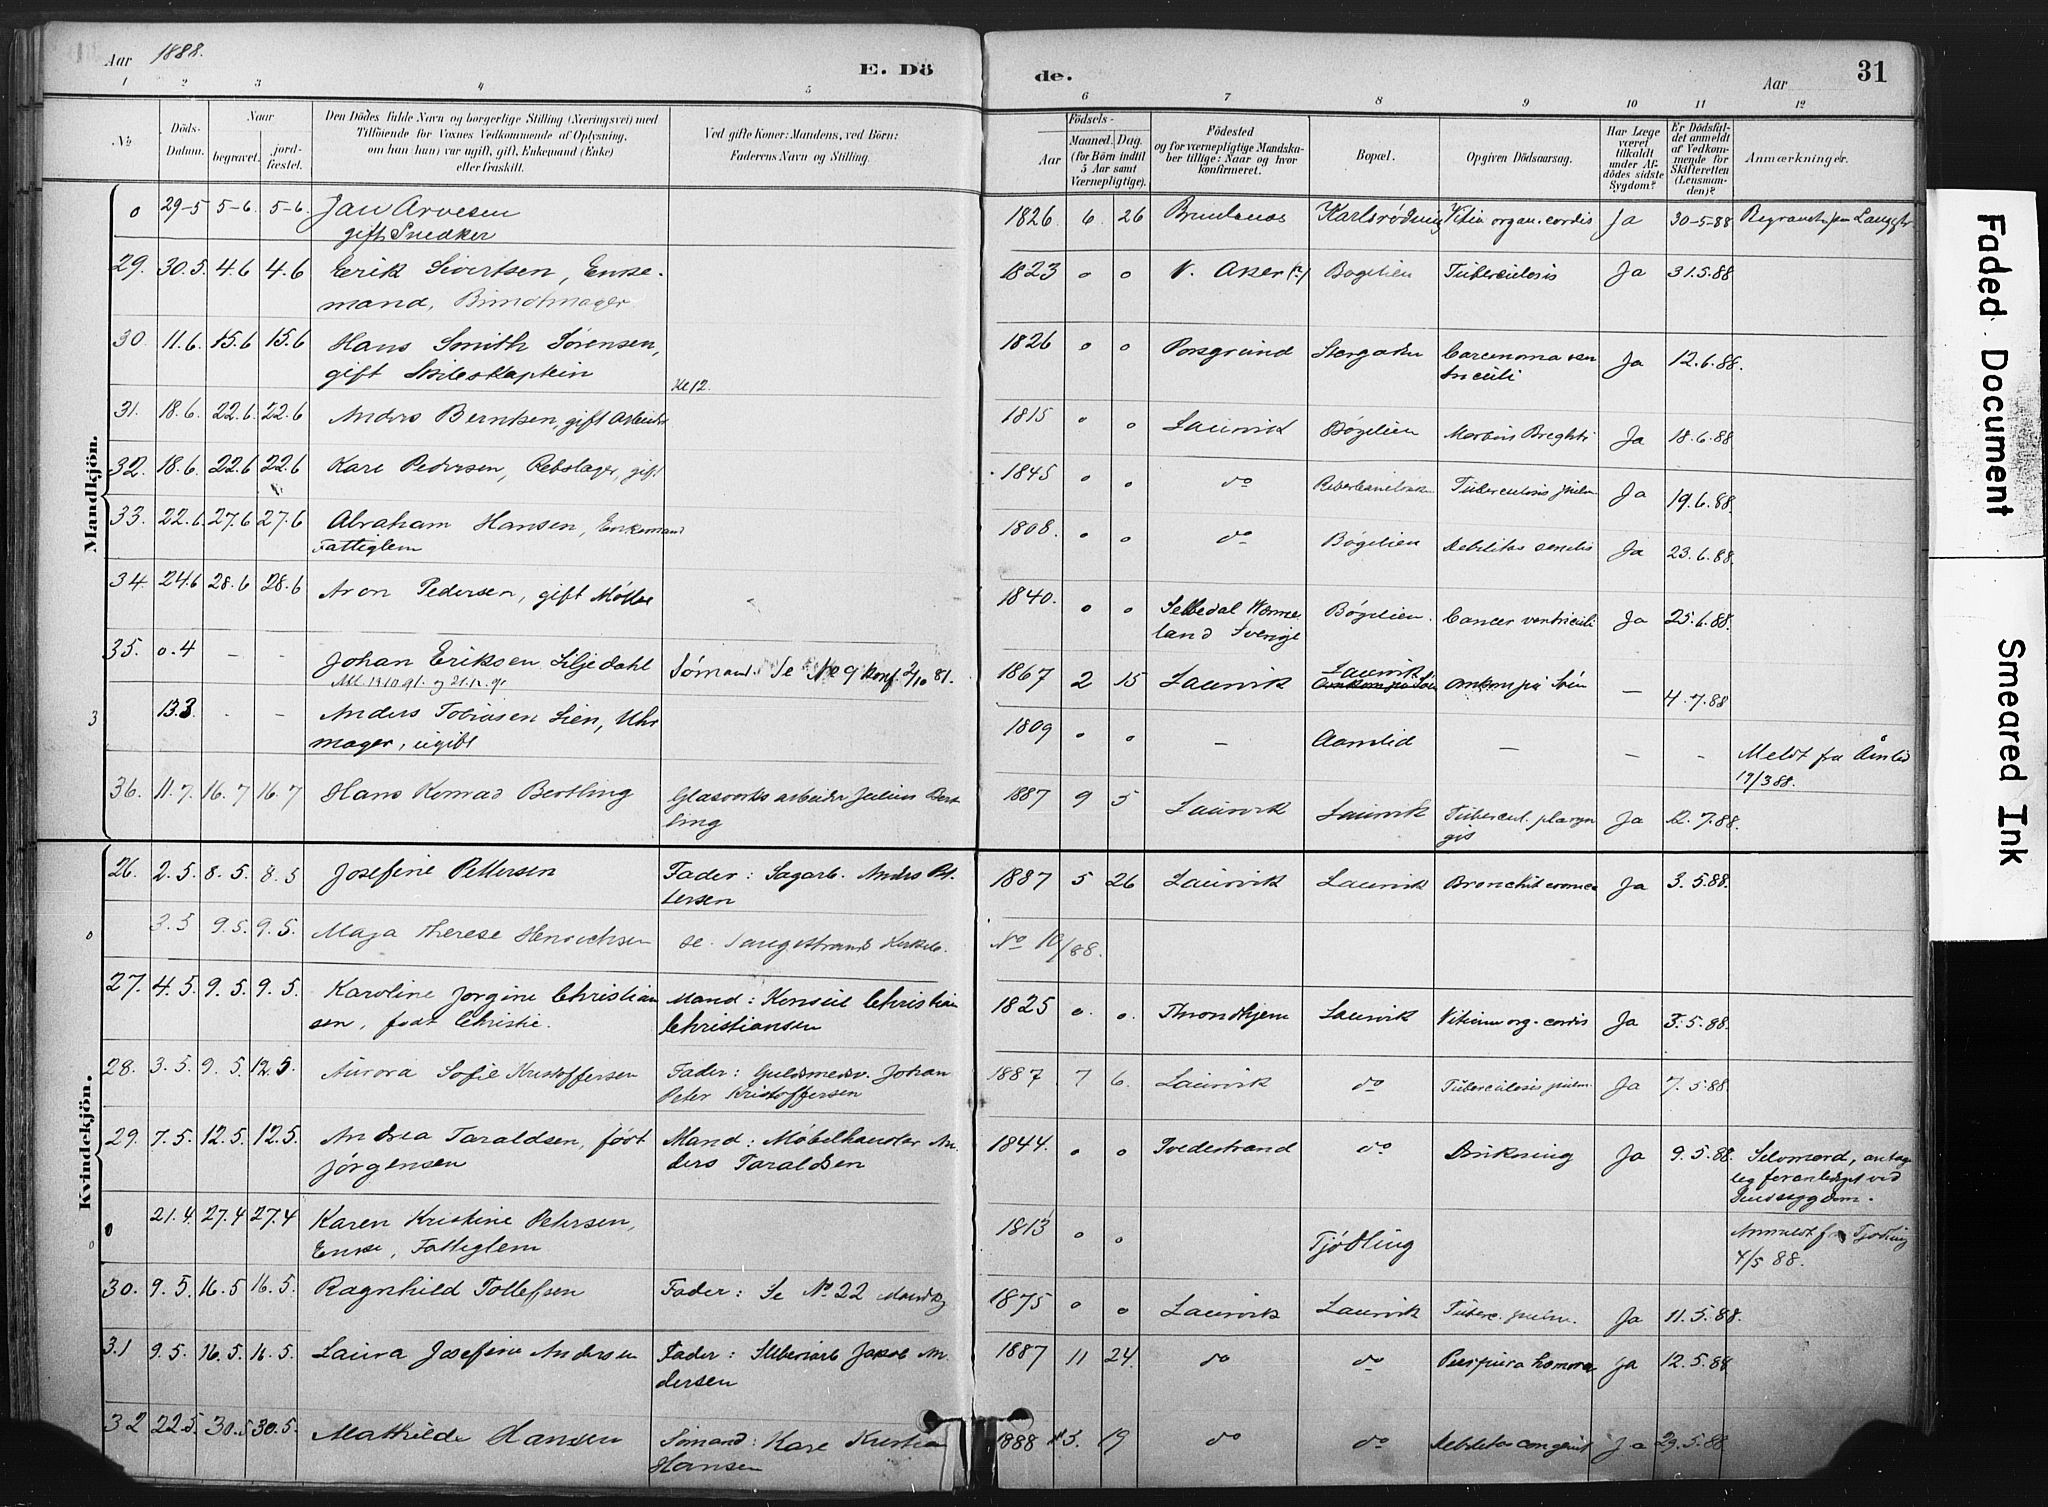 Aar 1888.
E. Dö
de.
Aar
31
1 2 3 4 5 6 7 8 9 10 11 12
No
Döds-Datum.
Naar
begravet.
jord-fæstet.
Den Dödes fulde Navn og borgerlige Stilling (Næringsvei) med
Tilföiende for Voxnes Vedkommende af Oplysning,
om han (hun) var ugift, gift, Enkemand (Enke)
eller fraskilt.
Ved gifte Koner: Mandens, ved Börn:
Faderens Navn og Stilling.
Födsels-
Aar
Maaned. Dag.
(for Börn indtil
5 Aar samt
Værnepligtige).
Födested
og for værnepligtige Mandska-
ber tillige: Naar og hvor
konfirmeret.
Bopæl.
Opgiven Dödsaarsag.
Har Læge
været
tilkaldt
under Af-
dödes sidste
Sygdom?
Er Dödsfal-
det anmeldt
af Vedkom-
mende for
Skifteretten
(Lensman-
den)?
Anmærkninger.
Mandkjön.
0 29-5 5-6. 5-6. Jan Arvesen 1826 6. 26 Brunlanes Vitiu organ. cordis Ja 30-5-88
gift Snedker
29. 30.5 4.6 4.6 Erik Sivertsen, Enke- 1823 o o V. Aker (?) Bøgelien Tuberculosis Ja 31.5.88
mand, Bundtmager
30 11.6. 15.6 15.6 Hans Smith Sørensen, 1826 o o Porsgrund Carcinoma ven Ja 12.6.88.
gift Skibskaptein Kl 12. triculi
31. 18.6. 22.6. 22.6 Anders Berntsen, gift Arbeider 1815 o o Laurvik Bøgelien Morbus Brighti Ja 18.6.88
32. 18.6. 22.6 22.6 Karl Pedersen, Rebslager, gift 1845 o o do Tuberculosis pulm Ja 19.6.88
33. 22.6. 27.6 27.6 Abraham Hansen, Enkemand 1808. o o do Bøgelien Debilitas senilis Ja 23.6.88.
Fattiglem
34. 24.6 28.6 28.6 Aron Pedersen, gift Møller 1840. o o Bøgelien. Cancer ventriculi Ja 25.6.88.
land Sverige
35. o.4 - - Johan Eriksen Liljedahl Sømand. Se No 9 Konf. 2/10 81. 1867 2 15 Laurvik Laurvik omkom paa Søen - 4.7.88
3 13.3 - - Anders Tobiasen Lien, Uhr 1809 o o - Aamlid - - -
mager, ugift Meldt fra Åmlid
17/3 88.
36. 11.7. 16.7 16.7 Hans Konrad Bertling Glasværksarbeider Julius Bert 1887 9 5 Laurvik Laurvik Tubercul. pharyn Ja 12.7.88.
ling gis
Kvindekjön.
26. 2.5. 8.5. 8.5 Josefine Pettersen Fader: Sagarb. Anders Pet 1887 5 26 Laurvik Laurvik Bronchit Ja 3.5.88.
tersen
o 3.5 9.5. 9.5. Maja Therese Henrichsen se. Langestrands Kirkeb. No 10/88.
27. 4.5. 9.5. 9.5. Karoline Jørgine Christian Mand: Konsul Christian 1825 o. o. Throndhjem Laurvik Vitium org. cordis Ja 5.5.88.
sen, født Christie. Christiansen
28. 3.5. 9.5. 12.5. Aurora Sofie Kristoffersen Fader: Guldsmedsv. Johan 1887. 7 6. Laurvik do Tuberculosis pulm. Ja 7.5.88
Peter Kristoffersen
29. 7.5. 12.5. 12.5. Andrea Taraldsen, født Mand: Møbelhandler An- 1844. o o Tvedestrand do Drukning Ja 9.5.88. Selvmord, antage
Jørgensen ders Taraldsen lig foranlediget ved
Sindssygdom.
0 21.4. 27.4 27.4 Karen Kristine Petersen, 1813 o o Tjødling Anmeldt fra Tjødling
Enke, Fattiglem 4/5 88.
30. 9.5. 16.5 16.5. Ragnhild Tollefsen Fader: Se No 22 Mandkj 1875 o o Laurvik Laurvik Tuberc. pulm. Ja 11.5.88.
31 9.5. 16.5. 16.5. Laura Josefine Andersen Fader: Jakob An- 1887 11 24. do do Purpura hæmorr Ja 12.5.88
dersen
32 22.5 30.5 30.5. Mathilde Hansen Sømand: Karl Kristian 1888 5. 19 do do Debilitas congenit Ja 29.5.88
Hansen
Faded Document
Smeared Ink